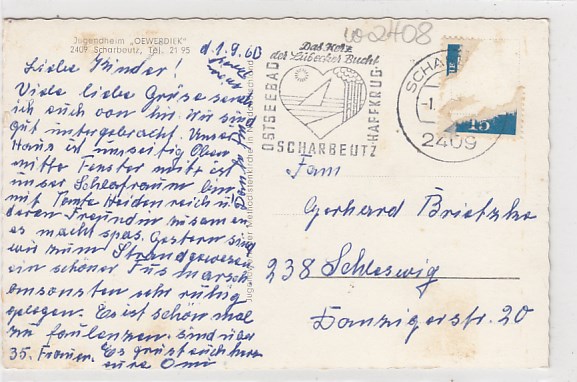 Jugendheim „OEWERDIEK"
2409 Scharbeutz, Tel. 21 95
d. 1. 9. 60
Liebe Kinder!
Viele liebe Grüse sendet
ich euch von hir. Wir sind
gut untergebracht. Unser
Haus ist umseitig Oben
mitte Fenster mitte ist
unser Schlafraum bin
mit Tante Heidenreich u.
deren Freundin zusamen
es macht spas. Gestern sind
wir zum Strand gewesen
ein schöner Fus marsch
ansonsten sehr ruhig
gelegen. Es ist schön mal
zu faulenzen. sind über
35. Frauen. Es grüst euch herz
eure Omi
Das Herz
der Lübecker Bucht
OSTSEEBAD
SCHARBEUTZ
HAFFKRUG
SCHA
-1.
2409
15
2408
Fam
Gerhard Brietzke
238 Schleswig
Danzigerstr. 20